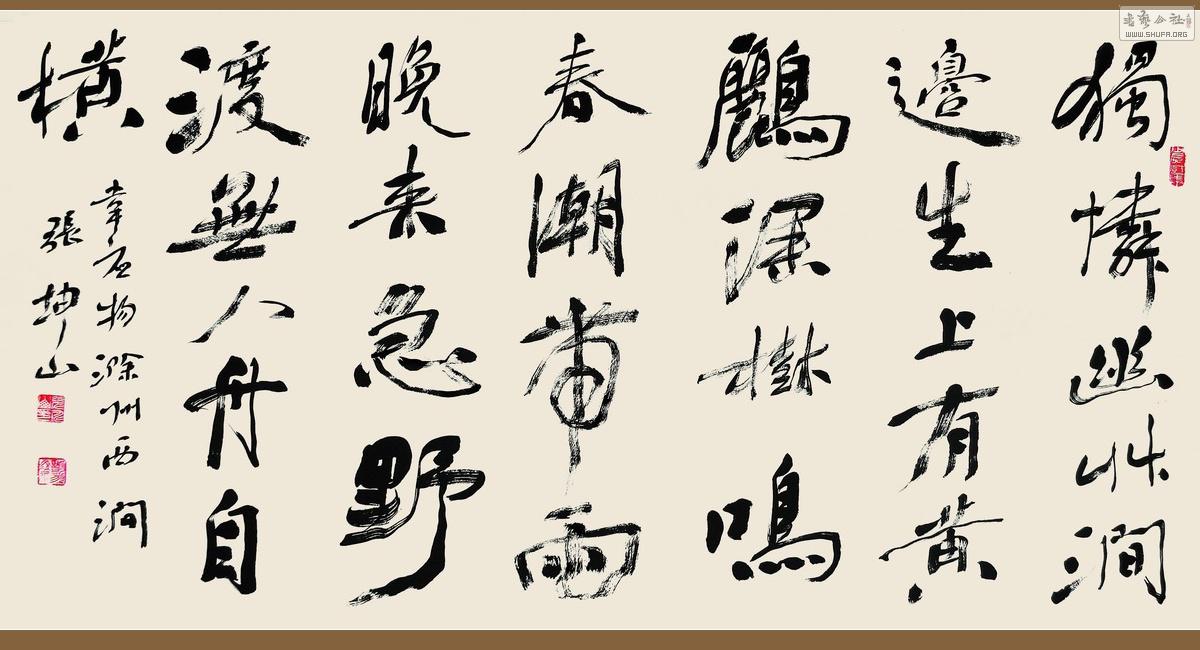 獨憐幽艸澗
邊生上有黃
鸝深樹鳴
春潮帶雨
晚來急野
渡無人舟自
橫
韋應物滁州西澗
張坤山
WWW.SHUFA.ORG